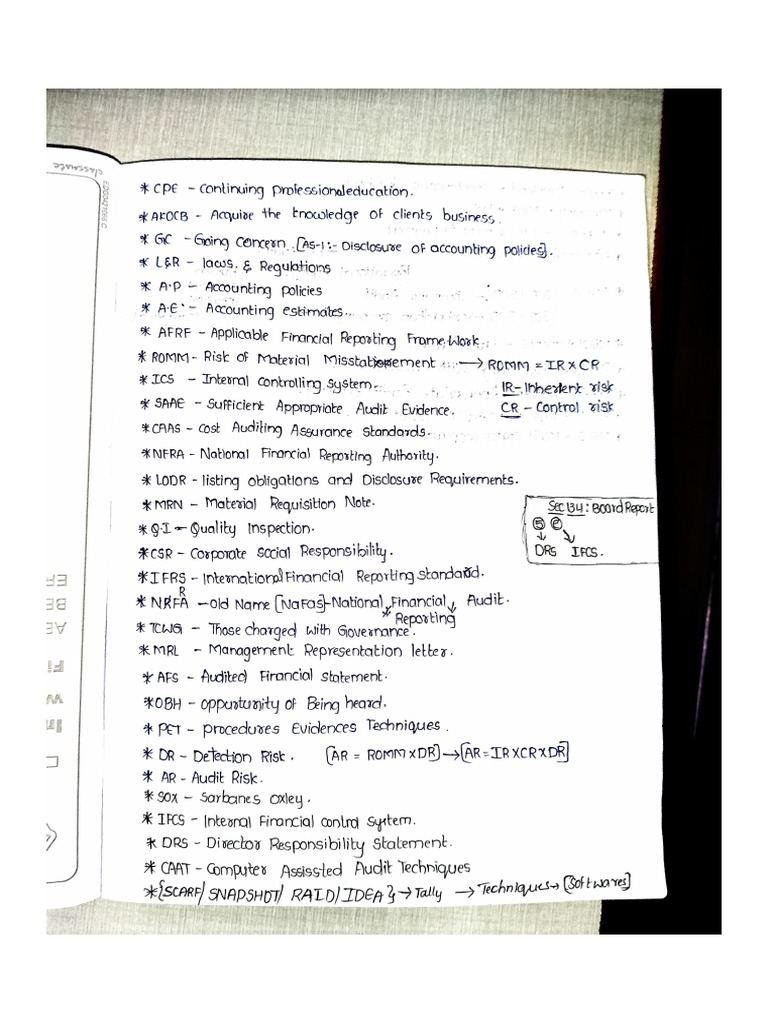 classmate
* CPE - Continuing professionaleducation.
* AKOCB - Acquire the knowledge of clients business.
* GC - Going concern [AS-1:- Disclosure of accounting policies].
* L&R - laws & Regulations
* A.P - Accounting policies
* A.E - Accounting estimates.
* AFRF - Applicable Financial Reporting Frame Work
* ROMM - Risk of Material Misstatement → ROMM = IR X CR
* ICS - Internal controlling system. IR - Inherent risk
* SAAE - Sufficient Appropriate Audit Evidence. CR - Control risk
* CAAS - cost Auditing Assurance standards.
* NFRA - National Financial Reporting Authority.
* LODR - listing obligations and Disclosure Requirements.
* MRN - Material Requisition Note.
Sec 134: Board Report
* Q.I - Quality Inspection.
⑤ ⓔ
* CSR - Corporate Social Responsibility.
DRS IFCS.
* IFRS - International Financial Reporting Standard.
* NRFA - Old Name [NaFas] - National Financial Audit.
R
* Reporting
* TCWG - Those charged with Governance.
* MRL - Management Representation letter.
* AFS - Audited Financial statement.
* OBH - oppurtunity of Being heard.
* PET - procedures Evidences Techniques.
* DR - Detection Risk. [AR = ROMM X DR] → [AR = IR X CR X DR]
* AR - Audit Risk.
* SOX - Sarbanes Oxley.
* IFCS - Internal Financial control system.
* DRS - Director Responsibility Statement.
* CAAT - Computer Assissted Audit Techniques
* {SCARF/ SNAPSHOT/ RAID/ IDEA} → Tally → Techniques → [Softwares]